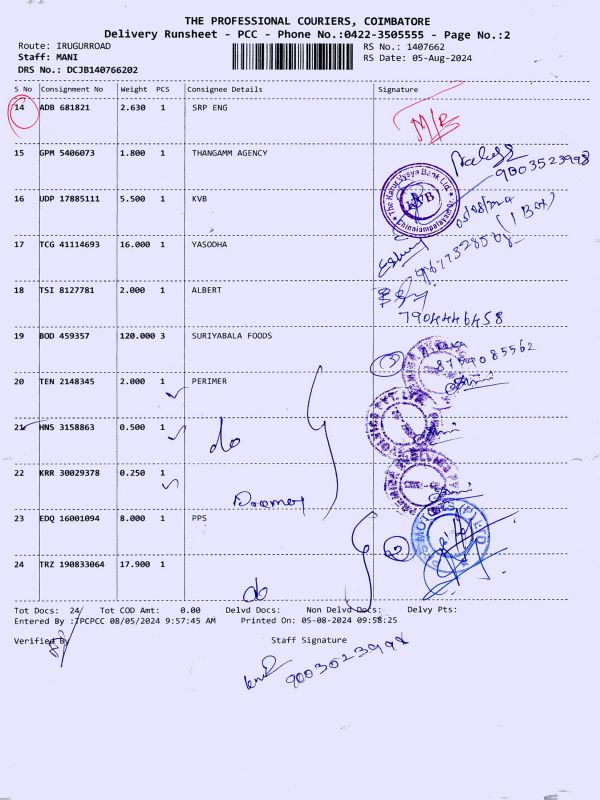 THE PROFESSIONAL COURIERS, COIMBATORE
Delivery Runsheet - PCC - Phone No.:0422-3505555 - Page No.:2
Route: IRUGURROAD RS No.: 1407662
Staff: MANI RS Date: 05-Aug-2024
DRS No.: DCJB140766202
S No Consignment No Weight PCS Consignee Details Signature
14 ADB 681821 2.630 1 SRP ENG
15 GPM 5406073 1.800 1 THANGAMM AGENCY
9003523998
16 UDP 17885111 5.500 1 KVB
The Karur Vysya Bank Ltd.
KVB
Chinniampalayam
05/08/2024
(1 Box)
17 TCG 41114693 16.000 1 YASODHA
18 TSI 8127781 2.000 1 ALBERT
7904446458
19 BOD 459357 120.000 3 SURIYABALA FOODS
(3)
8754085562
20 TEN 2148345 2.000 1 PERIMER
21 HNS 3158863 0.500 1
do
22 KRR 30029378 0.250 1
23 EDQ 16001094 8.000 1 PPS
MOTORS (P) LTD
(2)
24 TRZ 190833064 17.900 1
do
Tot Docs: 24 Tot COD Amt: 0.00 Delvd Docs: Non Delvd Docs: Delvy Pts:
Entered By :TPCPCC 08/05/2024 9:57:45 AM Printed On: 05-08-2024 09:58:25
Verified By Staff Signature
9003523998